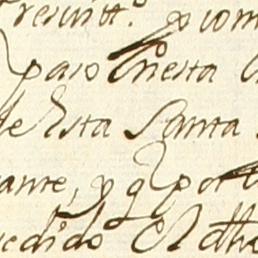 y com
paso En esta
de Esta Santa
ante, y q por
edido El dho